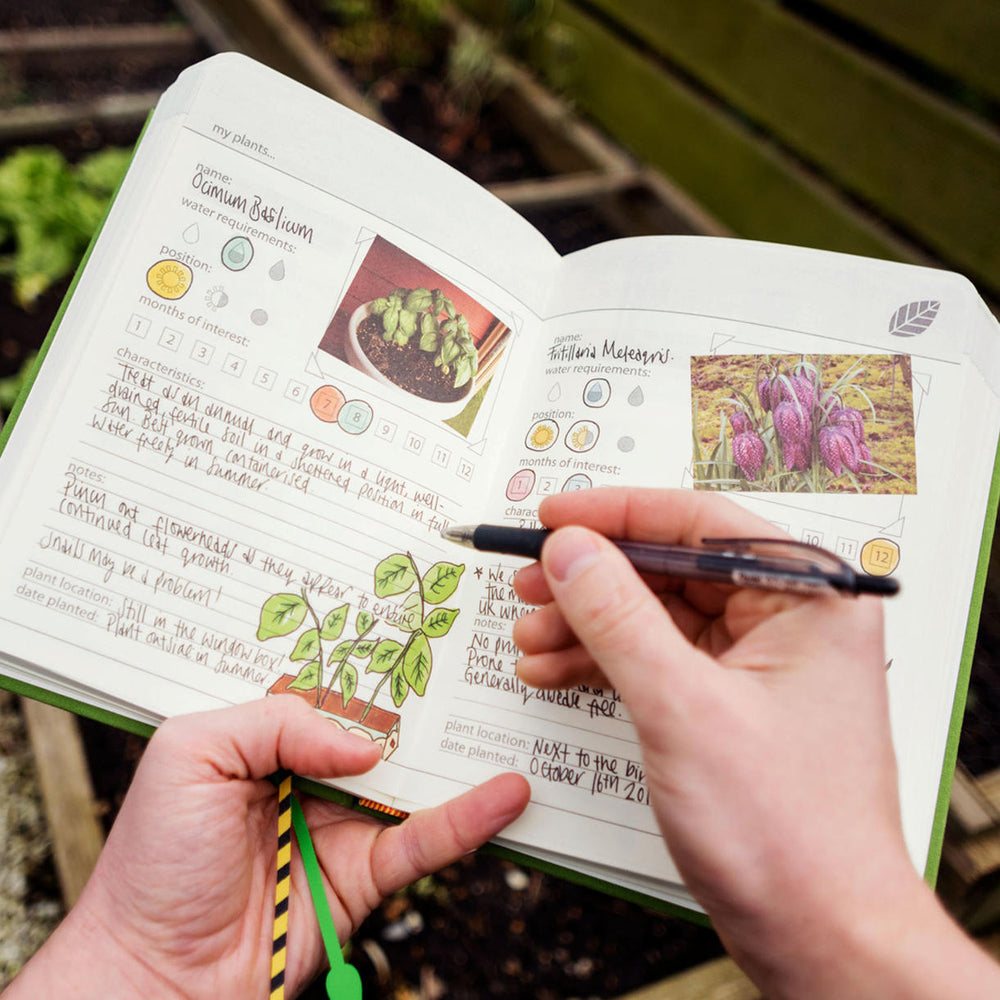 my plants...
name:
Ocimum Basilicum
water requirements:
position:
months of interest:
1 2 3 4 5 6 7 8 9 10 11 12
characteristics:
Treat as an annual and grow in a light, well-
drained, fertile soil in a sheltered position in full
sun. Best grown containerised.
Water freely in summer.
notes:
Pinch out flowerheads as they appear to ensure
continued leaf growth.
Snails may be a problem!
plant location: Still in the window box!
date planted: Plant outside in summer.
name:
Fritillaria Meleagris.
water requirements:
position:
months of interest:
1 2 3 10 11 12
* We
UK
notes:
No
Prone
Generally disease free.
plant location: Next to the
date planted: October 16th